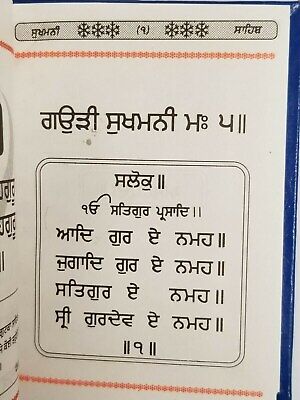 ਸੁਖਮਨੀ (੧) ਸਾਹਿਬ
ਗਉੜੀ ਸੁਖਮਨੀ ਮਃ ੫॥
ਸਲੋਕੁ॥
ੴ ਸਤਿਗੁਰ ਪ੍ਰਸਾਦਿ।।
ਆਦਿ ਗੁਰ ਏ ਨਮਹ॥
ਜੁਗਾਦਿ ਗੁਰ ਏ ਨਮਹ॥
ਸਤਿਗੁਰ ਏ ਨਮਹ॥
ਸ੍ਰੀ ਗੁਰਦੇਵ ਏ ਨਮਹ॥
॥੧॥